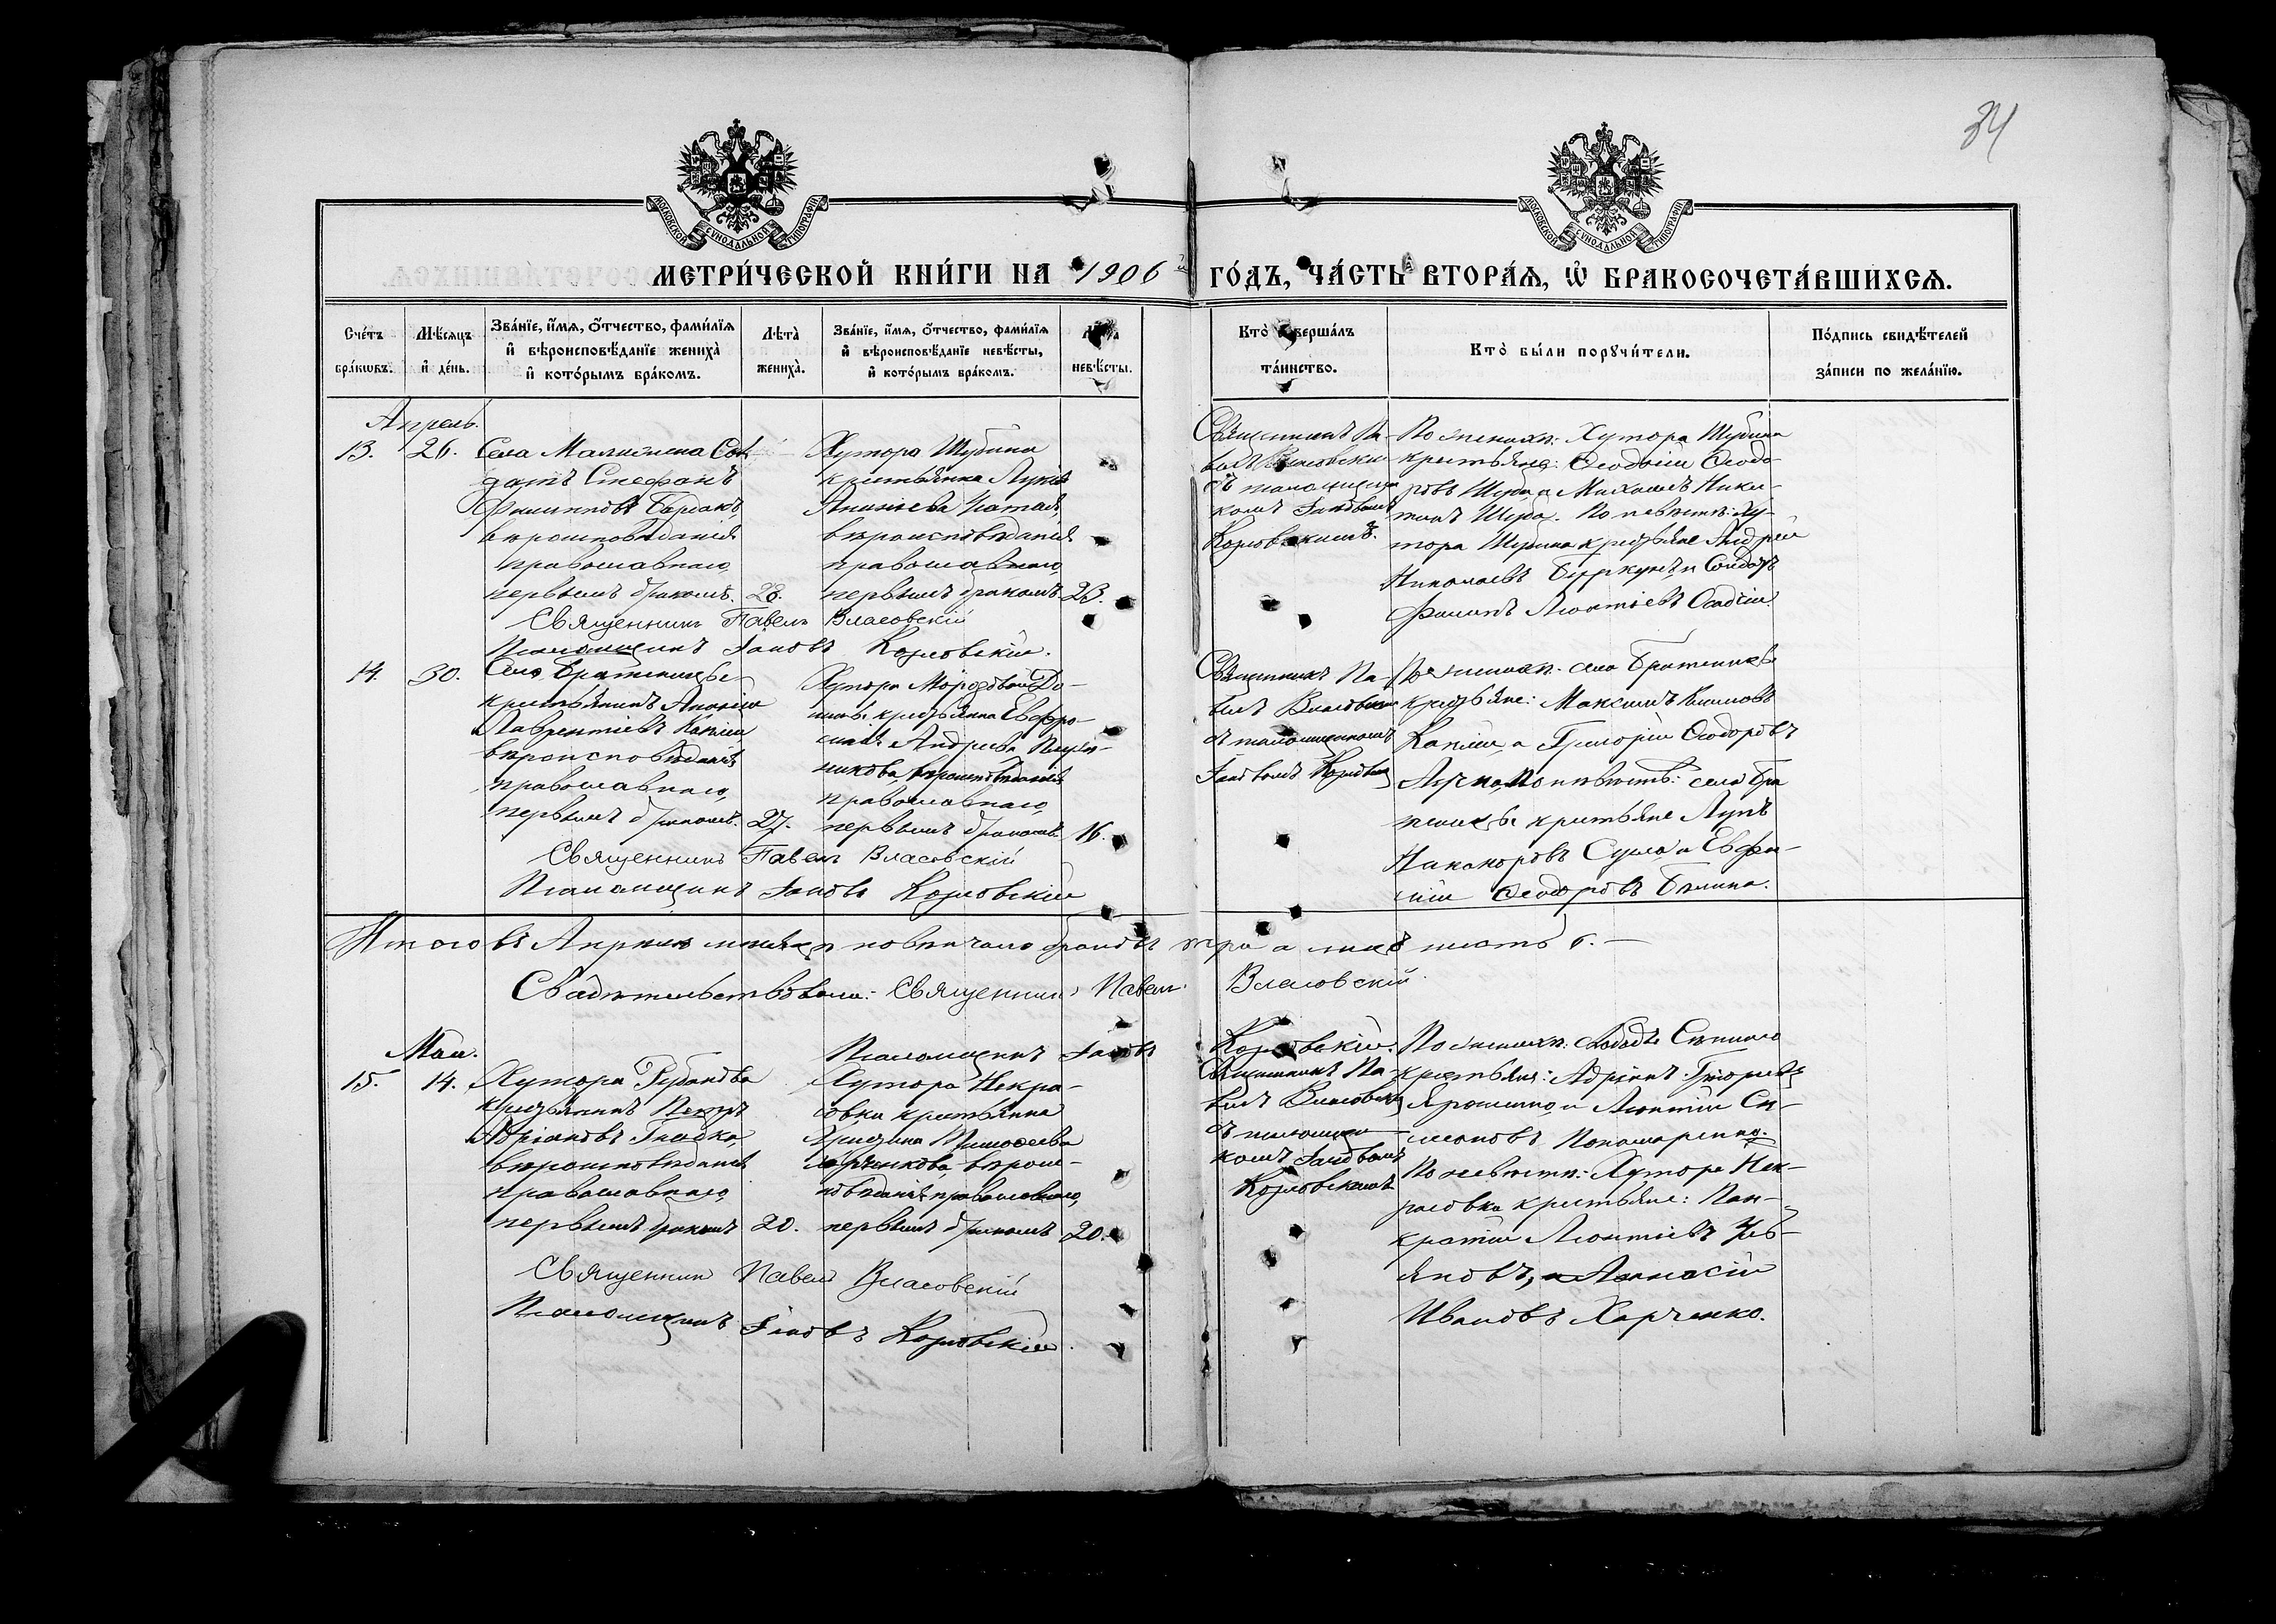 34
МОСКОВСКОЙ СУНОДАЛЬНОЙ ТИПОГРАФІИ
МОСКОВСКОЙ СУНОДАЛЬНОЙ ТИПОГРАФІИ
МЕТРИ́ЧЕСКОЙ КНИ́ГИ НА 1906 ГО́ДЪ, ЧА́СТЬ ВТОРА́Я, Ѡ҆ БРАКОСОЧЕТА́ВШИХСЯ.
Сче́тъ бра́кѡвъ.
Мѣ́сяцъ и҆ де́нь.
Зва́нїе, и҆́мя, ѻ҆́тчество, фами́лїя
и҆ вѣроисповѣ́данїе жениха̀
и҆ кото́рымъ бра́комъ.
Лѣта̀
жениха̀.
Зва́нїе, и҆́мя, ѻ҆́тчество, фами́лїя
и҆ вѣроисповѣ́данїе невѣ́сты,
и҆ кото́рымъ бра́комъ.
невѣ́сты.
Кто̀ соверша́лъ
та́инство.
Кто̀ бы́ли порꙋчи́тели.
По́дпись свидѣ́телей
за́писи по жела́нїю.
Апрель.
13.
26.
Села Сол-
датъ Стефанъ
Филипповъ
вѣроисповѣданія
православнаго,
первымъ бракомъ.
28.
Хутора Шубина
крестьянка Лукія
вѣроисповѣданія
православнаго,
первымъ бракомъ
23.
Священникъ Па-
велъ Власовскій
съ псаломщи-
комъ Іаковомъ
Козловскимъ.
По женихѣ: Хутора Шубина
крестьяне: Ѳеодосій Ѳеодо-
ровъ Михаилъ Ники-
тинъ По невѣстѣ: Ху-
тора Шубина крестьяне Андрей
Николаевъ и Солдатъ
Филипъ Леонтіевъ
Священникъ Павелъ Власовскій
Псаломщикъ Іаковъ Козловскій.
14.
30.
Села Братеницы
крестьянинъ
Лаврентіевъ
вѣроисповѣданія
православнаго,
первымъ бракомъ.
27.
Хутора
крестьянка Евфро-
синія Андреева
никова, вѣроисповѣданія
православнаго,
первымъ бракомъ
16.
Священникъ Па-
велъ Власовскій
съ псаломщикомъ
Іаковомъ
По женихѣ: села Братеницы
крестьяне: Максимъ Климовъ
и Григорій Ѳеодоровъ
По невѣстѣ: села Бра
теницы крестьяне Лупъ
Никаноровъ и Евфи-
мій Ѳеодоровъ
Священникъ Павелъ Власовскій
Псаломщикъ Іаковъ Козловскій
Итого въ Апрѣлѣ мѣсяцѣ повѣнчано браковъ три а лицъ шесть 6.—
Свидѣтельствовали: Священникъ Павелъ Власовскій
Псаломщикъ Іаковъ Козловскій.
Май.
15.
14.
Хутора
крестьянинъ Петръ
Адріановъ Гладко,
вѣроисповѣданія
православнаго,
первымъ бракомъ
20.
Хутора Некра-
совки крестьянка
Христина Тимоѳеева
вѣроис-
повѣданія православнаго,
первымъ бракомъ
20.
Священникъ Па-
велъ Власовскій
съ псаломщи-
комъ Іаковомъ
Козловскимъ
По женихѣ:
крестьяне: Адріанъ Григорьевъ
и Леонтій Си-
меоновъ Пономаренко.
По невѣстѣ: Хутора Нек-
расовки крестьяне: Пан-
кратій Леонтіевъ
Аѳанасій
Ивановъ Харченко.
Священникъ Павелъ Власовскій
Псаломщикъ Іаковъ Козловскій.